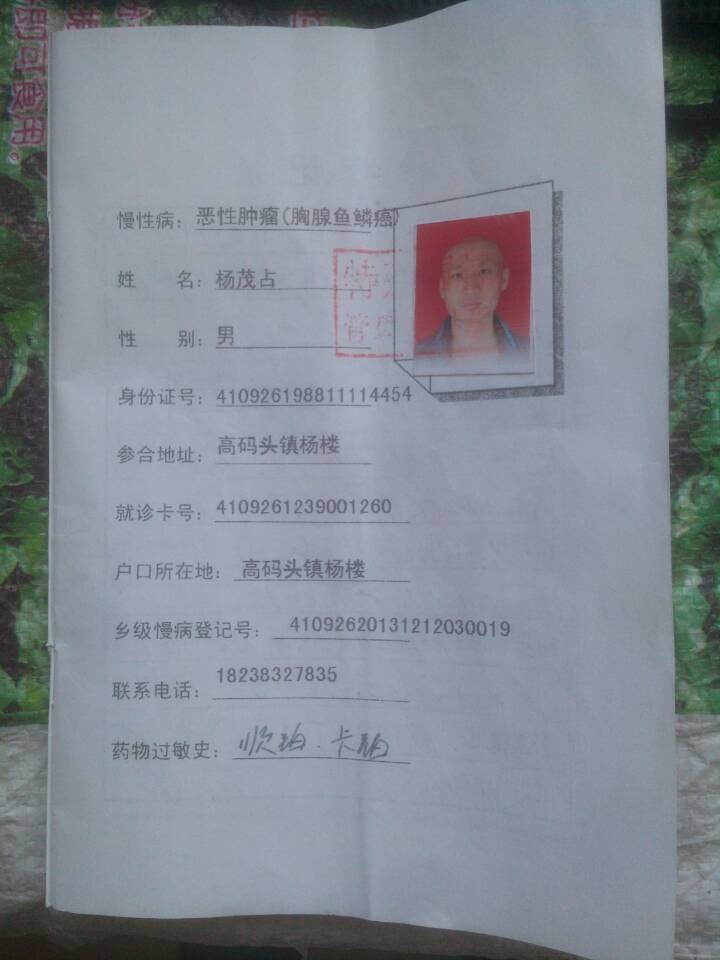 即可食用。
慢性病：恶性肿瘤(胸腺鱼鳞癌)
姓 名：杨茂占
性 别：男
身份证号：410926198811114454
参合地址：高码头镇杨楼
就诊卡号：4109261239001260
户口所在地：高码头镇杨楼
乡级慢病登记号：41092620131212030019
联系电话：18238327835
药物过敏史：顺铂．卡铂